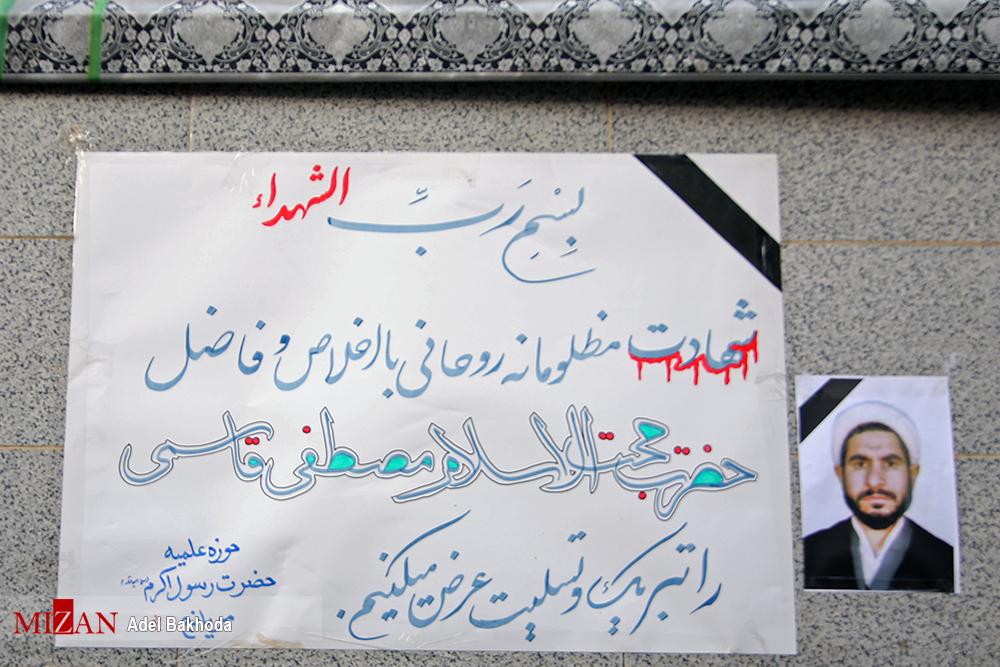 بِسْمِ رَبِّ الشهداء
شهادت مظلومانه روحانی با اخلاص و فاضل
حضرت حجت الاسلام مصطفی قاسمی
را تبریک و تسلیت عرض میکنیم.
حوزه علمیه
حضرت رسول اکرم
MIZAN
Adel Bakhoda